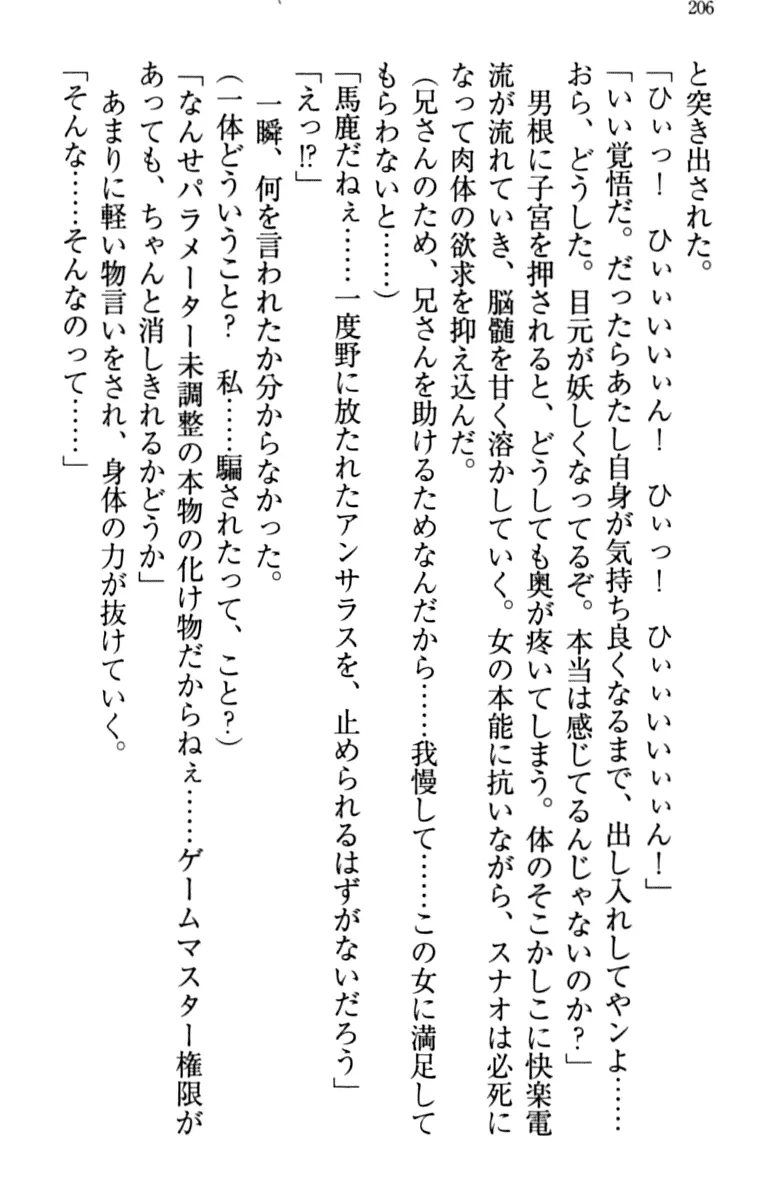 206
と突き出された。
「ひぃっ！　ひぃぃいいぃん！　ひぃっ！　ひぃぃいいぃぃん！」
「いい覚悟だ。だったらあたし自身が気持ち良くなるまで、出し入れしてやンよ……
おら、どうした。目元が妖しくなってるぞ。本当は感じてるんじゃないのか？」
　男根に子宮を押されると、どうしても奥が疼いてしまう。体のそこかしこに快楽電
流が流れていき、脳髄を甘く溶かしていく。女の本能に抗いながら、スナオは必死に
なって肉体の欲求を抑え込んだ。
（兄さんのため、兄さんを助けるためなんだから……我慢して……この女に満足して
もらわないと……）
「馬鹿だねぇ……一度野に放たれたアンサラスを、止められるはずがないだろう」
「えっ!?」
　一瞬、何を言われたか分からなかった。
（一体どういうこと？　私……騙されたって、こと？）
「なんせパラメーター未調整の本物の化け物だからねぇ……ゲームマスター権限が
あっても、ちゃんと消しきれるかどうか」
　あまりに軽い物言いをされ、身体の力が抜けていく。
「そんな……そんなのって……」